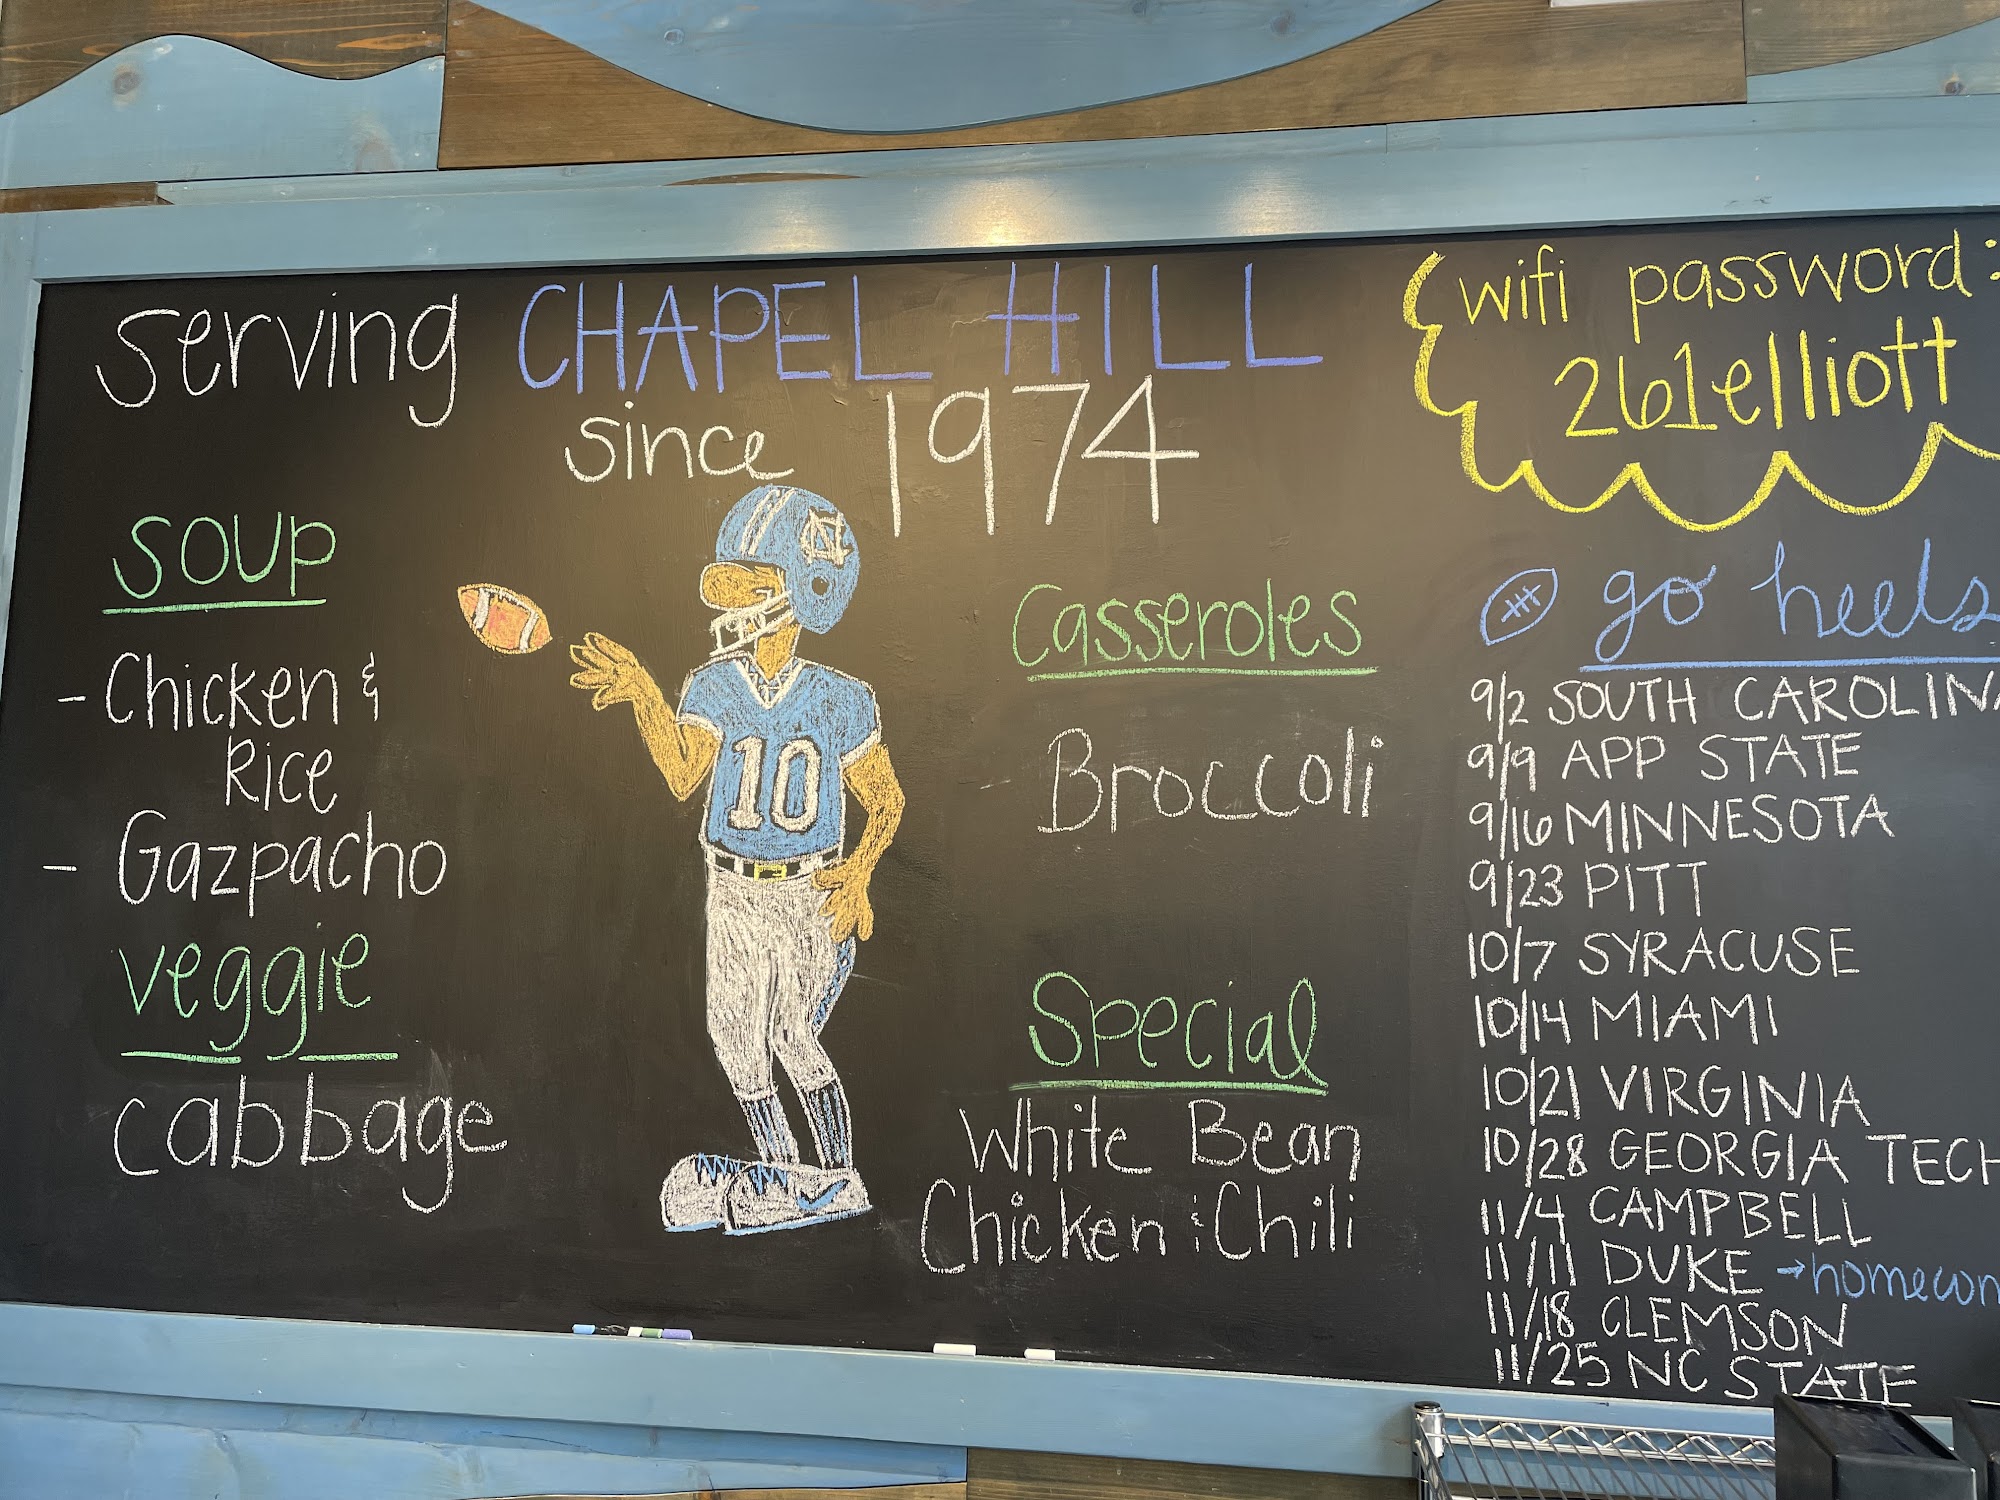 Serving CHAPEL HILL
since 1974
SOUP
- Chicken &
Rice
- Gazpacho
veggie
cabbage
NC
10
Casseroles
Broccoli
Special
White Bean
Chicken & Chili
wifi password:
261elliott
go heels
9/2 SOUTH CAROLINA
9/9 APP STATE
9/16 MINNESOTA
9/23 PITT
10/7 SYRACUSE
10/14 MIAMI
10/21 VIRGINIA
10/28 GEORGIA TECH
11/4 CAMPBELL
11/11 DUKE → homecom
11/18 CLEMSON
11/25 NC STATE